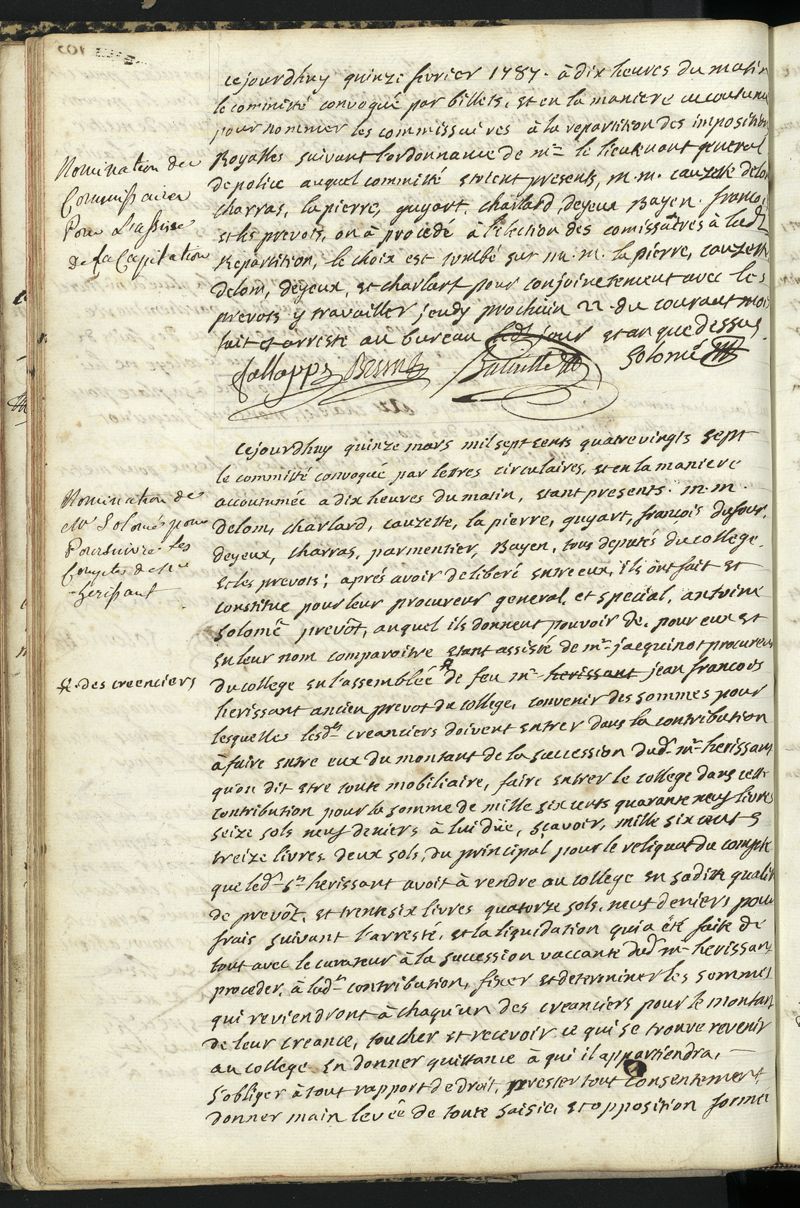 cejourdhuy quinze fevrier 1787. à dix heures du matin
le committé convoqué par billets, et en la maniere accoutumé
pour nommer les commissaires à la repartition des imposition
Nomination de
Commissaires
Pour L'assise
de la Capitation
Royalles suivant l'ordonnance de mr. le lieutenant general
de police auquel committé etoient presents, m.m. cauzette delom
charras, lapierre, guyart, charlard, deyeux Bayen. françois
et les prevots, on a procédé à l'election des comissaires à lad.
Repartition, le choix est tombé sur m.m. la pierre, cauzette
delom, deyeux, et charlart pour conjointement avec les
prevots y travailler jeudy prochain 22 du courant moi
fait et arresté au bureau led. jour et an que dessus
Solomé
cejourdhuy quinze mars mil sept cents quatrevingts sept
le committé convoqué par lettres circulaires, et en la maniere
accoutumée a dix heures du matin, etant presents. m.m.
Nomination de
Mr Solomé pour
Poursuivre les
Comptes de Mr
herissant
delom, charlard, cauzette, la pierre, guyart, françois dufour,
deyeux, charras, parmentier, Bayen, tous deputés du college.
et les prevots; aprés avoir deliberé entre eux, ils ont fait et
constitue pour leur procureur general, et special, antoine
Solomé prevôt, auquel ils donnent pouvoir de. pour eux et
en leur nom comparoitre etant assisté de mr. jacquinot procureur
du college en l'assemblée de feu mr. herissant jean françois
des creenciers
herissant ancien prevot du college, convenir des sommes pour
lesquelles lesd. creanciers doivent entrer dans la contribution
à faire entre eux du montant de la succession dud. mr. herissant
qu'on dit etre toute mobiliaire, faire entrer le college dans cette
contribution pour la somme de mille six cents quarante neuf livres
seize sols neuf deniers à lui düe, sçavoir, mille six cent
treize livres deux sols, du principal pour le reliquat du compte
que led. sr. herissant avoit à rendre au college en sadite qualité
de prevôt, et trente six livres quatorze sols, neuf deniers pour
frais suivant l'arresté, et la liquidation qui a été faite de
tout avec le curateur à la succession vaccante dud. mr. herissant
proceder, à lad. contribution, fixer et determiner les sommes
qui reviendront à chaqu'un des creanciers pour le montant
de leur creance, toucher et recevoir ce qui se trouve revenir
au college en donner quittance à qui il appartiendra,
s'obliger à tout rapport de droit, prester tout consentement,
donner main levée de toute saisie, et opposition formée